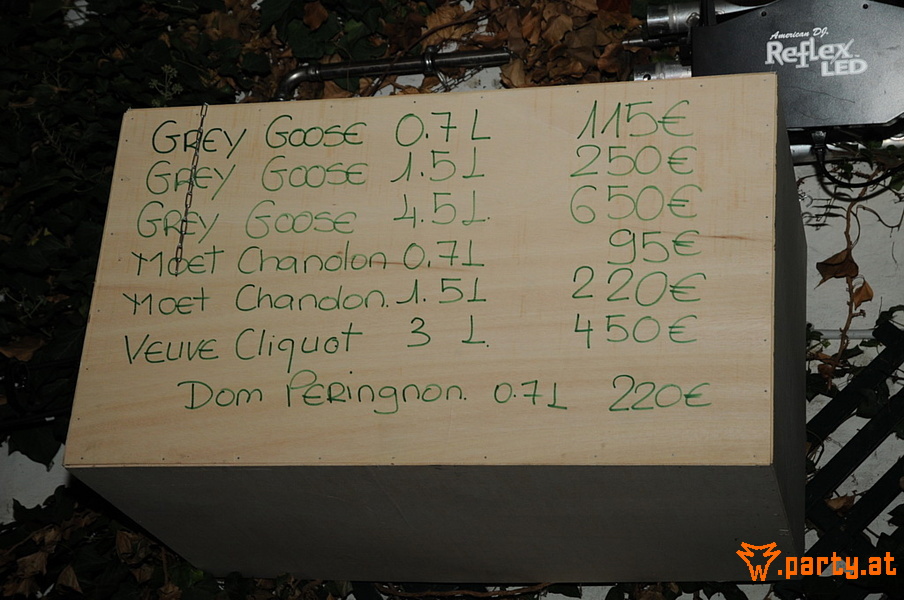 American DJ.
Reflex
LED
GREY GOOSE 0.7 L 115€
GREY GOOSE 1.5 L 250€
GREY GOOSE 4.5 L. 650€
Moet Chandon 0.7L 95€
Moet Chandon. 1.5L 220€
VEUVE Cliquot 3 L. 450€
Dom PERingnon. 0.7L 220€
w.party.at